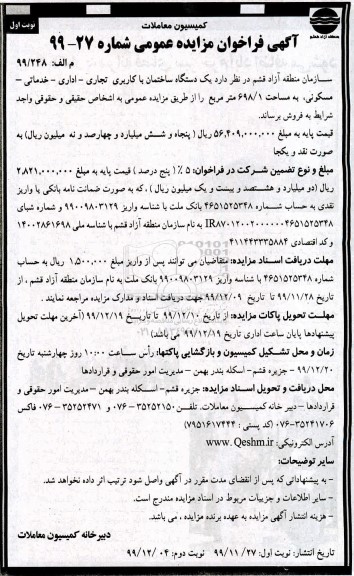 نوبت اول
کمیسیون معاملات
آگهی فراخوان مزایده عمومی شماره ۲۷- ۹۹
منطقه آزاد قشم
م الف: ۹۹/۲۴۸
سازمان منطقه آزاد قشم در نظر دارد یک دستگاه ساختمان با کاربری تجاری - اداری - خدماتی -
مسکونی، به مساحت ۶۹۸/۱ متر مربع را از طریق مزایده عمومی به اشخاص حقیقی و حقوقی واجد
شرایط به فروش برساند.
قیمت پایه به مبلغ ۵۶,۴۰۹,۰۰۰,۰۰۰ ریال ( پنجاه و شش میلیارد و چهارصد و نه میلیون ریال) به
صورت نقد و یکجا
مبلغ و نوع تضمین شرکت در فراخوان: ۵ ٪ ( پنج درصد ) قیمت پایه به مبلغ ۲,۸۲۱,۰۰۰,۰۰۰
ریال (دو میلیارد و هشتصد و بیست و یک میلیون ریال ) ، که به صورت ضمانت نامه بانکی یا واریز
نقدی به حساب شماره ۴۶۵۱۵۲۵۳۴۸ بانک ملت با شناسه واریز ۹۹۰۰۹۸۰۳۱۲۹ و شماره شبای
IR۸۷۰۱۲۰۰۲۰۰۰۰۰۰۴۶۵۱۵۲۵۳۴۸ به نام سازمان منطقه آزاد قشم با شناسه ملی ۱۴۰۰۲۸۶۱۶۹۸
و کد اقتصادی ۴۱۱۴۴۳۳۳۵۸۸۴
مهلت دریافت اسناد مزایده: متقاضیان می توانند پس از واریز مبلغ ۱,۵۰۰,۰۰۰ ریال به حساب
شماره ۴۶۵۱۵۲۵۳۴۸ با شناسه واریز ۹۹۰۰۹۸۰۳۱۲۹ بانک ملت به نام سازمان منطقه آزاد قشم ، از
تاریخ ۹۹/۱۱/۲۸ تا تاریخ ۹۹/۱۲/۰۹ جهت دریافت اسناد و مدارک مزایده مراجعه نمایند .
مهلت تحویل پاکات مزایده: از تاریخ ۹۹/۱۲/۱۰ تا تاریخ ۹۹/۱۲/۱۹ (آخرین مهلت تحویل
پیشنهادها پایان ساعت اداری تاریخ ۹۹/۱۲/۱۹ می باشد)
زمان و محل تشکیل کمیسیون و بازگشایی پاکتها: رأس ساعت ۱۰:۰۰ روز چهارشنبه تاریخ
۹۹/۱۲/۲۰ - جزیره قشم- اسکله بندر بهمن – مدیریت امور حقوقی و قراردادها
محل دریافت و تحویل اسناد مزایده: جزیره قشم- اسکله بندر بهمن –مدیریت امور حقوقی و
قراردادها – دبیر خانه کمیسیون معاملات. تلفن: ۳۵۲۵۲۱۵۰-۰۷۶ و ۳۵۲۵۲۴۷۱ -۰۷۶ فاکس
۳۵۲۴۱۷۰۶-۰۷۶ (کد پستی : ۷۹۵۱۶۱۷۴۴۴)
آدرس الکترونیکی: www.Qeshm.ir
سایر توضیحات:
- به پیشنهاداتی که پس از انقضای مدت مقرر در آگهی واصل شود ترتیب اثر داده نخواهد شد.
- سایر اطلاعات و جزییات مربوط در اسناد مزایده مندرج است.
- هزینه انتشار آگهی مزایده به عهده برنده مزایده ، می باشد.
دبیرخانه کمیسیون معاملات
تاریخ انتشار: نوبت اول: ۹۹/۱۱/۲۷ نوبت دوم: ۹۹/۱۲/۰۴